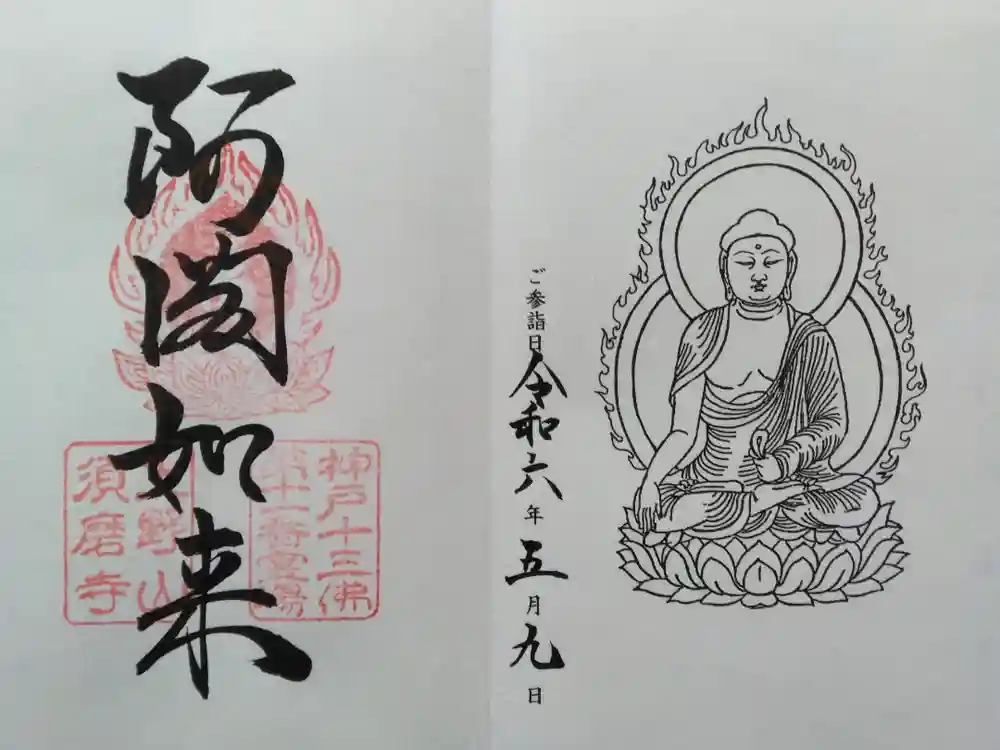 阿閦如来
神戸十三佛
第十一番霊場
上野山
須磨寺
ご参詣日 令和六年五月九日